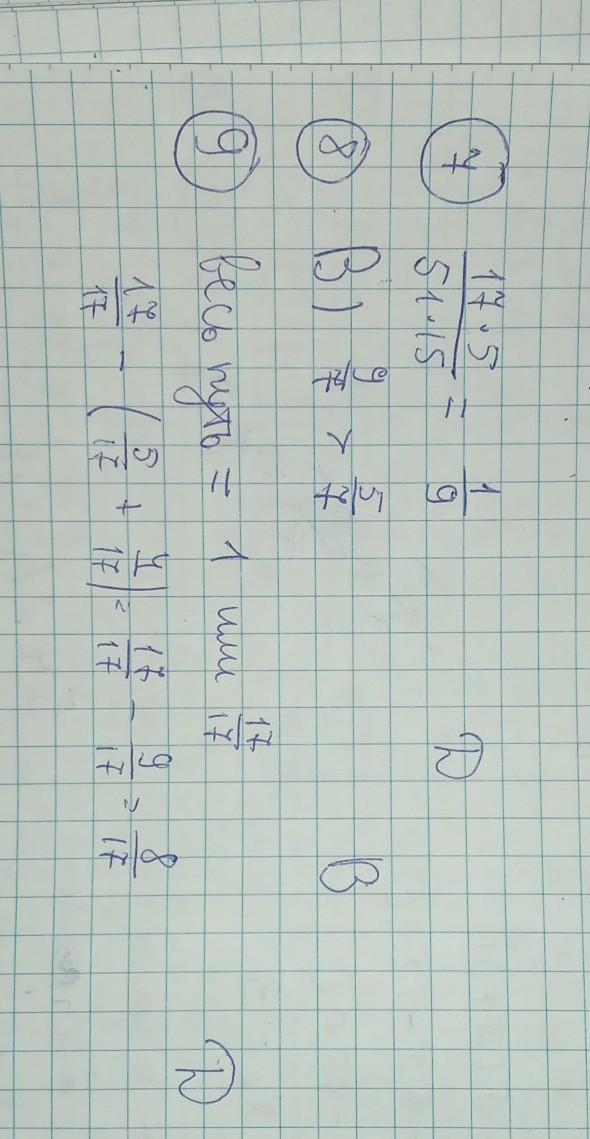 7 17·5/51·15 = 1/9 D
8 B) 9/7 > 5/7 B
9 весь путь = 1 или 17/17
17/17 - (5/17 + 4/17) = 17/17 - 9/17 = 8/17 D